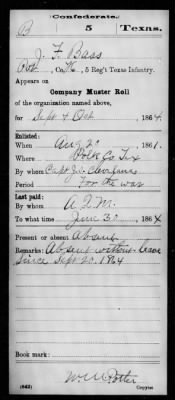 Confederate.
B 5 Texas.
J. F. Bass
Pvt, Co. K, 5 Reg't Texas Infantry.
Appears on
Company Muster Roll
of the organization named above,
for Sept & Oct, 1864.
Enlisted:
When Aug 20, 1861.
Where Polk Co Tex
By whom Capt J.
Period For the war
Last paid:
By whom A.Q.M.
To what time June 30, 1864
Present or absent Absent
Remarks: Absent without leave
since Sept 20, 1864
Book mark:
(642) Copyist.